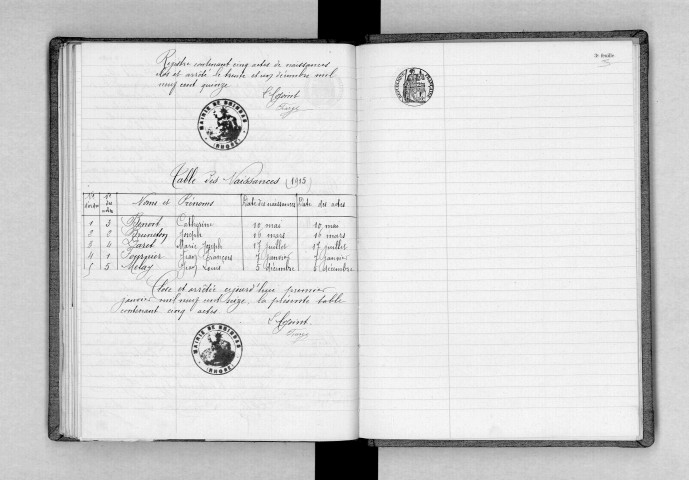 Registre contenant cinq actes de naissances
clos et arrêté le trente et un décembre mil
neuf cent quinze
L'Adjoint
MAIRIE DE BRINDAS
(RHONE)
Table des Naissances (1915)
Nos d'ordre Nos des actes Noms et Prénoms Date des naissances Date des actes
1 3 Benoit Catherine 10 mai 10 mai
2 2 Joseph 16 mars 16 mars
3 4 Marie Joseph 17 juillet 17 juillet
4 1 François 7 janvier 7 janvier
5 5 Melay Louis 5 décembre 6 décembre
Clos et arrêtée aujourd'hui premier
janvier mil neuf cent seize la présente table
contenant cinq actes.
L'Adjoint.
MAIRIE DE BRINDAS
(RHONE)
feuille